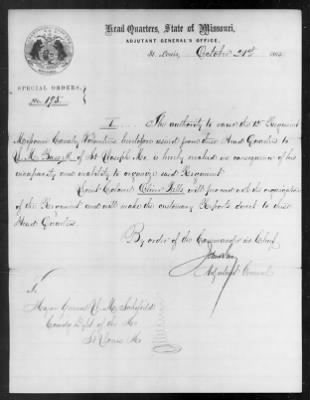 Head Quarters, State of Missouri,
ADJUTANT GENERAL'S OFFICE,
St. Louis, October 21st 186
SPECIAL ORDERS,
No. 195.
I The authority to raise the 12 Regiment
Missouri Cavalry Volunteers heretofore issued from these Head Quarters to
of St Joseph Mo. is hereby revoked in consequence of his
incapacity and inability to organize said Regiment
Lieut Colonel Oliver Wells will proceed with the organization
of the Regiment and will make the customary Reports direct to these
Head Quarters.
By order of the Commander in Chief
Adjutant General
To
Major General J. M. Schofield
Comdg Dept of the Mo
St Louis Mo